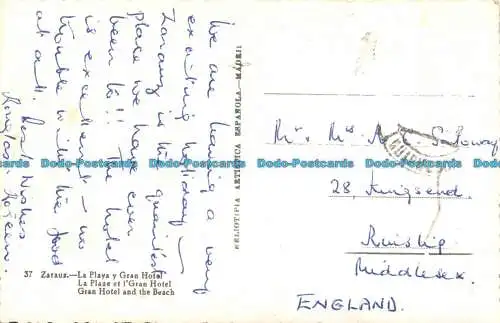 We are having a very
exciting holiday —
Zarauz is the quaintest
place we have ever
been to!! The hotel
is excellent — no
trouble with the food
at all. Best Wishes
HELIOTIPIA ARTISTICA ESPAÑOLA.—MADRID
Mr. Mrs A. C.
28, Kingsend,
Ruislip
Middlesex.
ENGLAND.
37 Zarauz.—La Playa y Gran Hotel
La Plage et l'Gran Hotel
Gran Hotel and the Beach
Dodo-Postcards Dodo-Postcards Dodo-Postcards Dodo-Postcards
Dodo-Postcards Dodo-Postcards Dodo-Postcards Dodo-Postcards